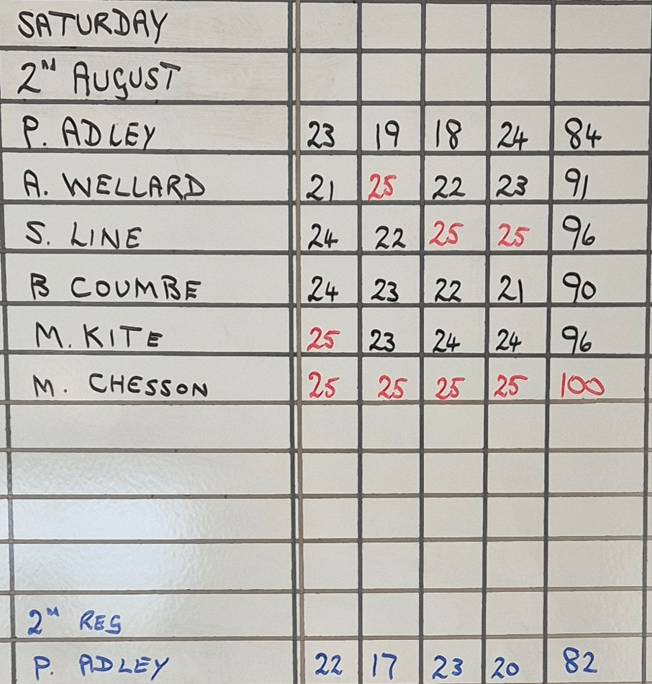 SATURDAY
2ND AUGUST
P. ADLEY 23 19 18 24 84
A. WELLARD 21 25 22 23 91
S. LINE 24 22 25 25 96
B COUMBE 24 23 22 21 90
M. KITE 25 23 24 24 96
M. CHESSON 25 25 25 25 100
2ND REG
P. ADLEY 22 17 23 20 82